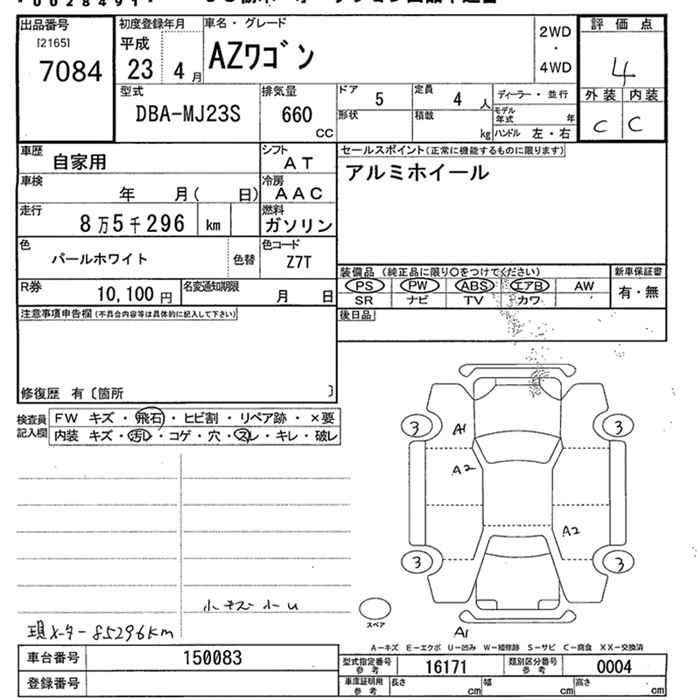 出品番号
[2165]
7084
初度登録年月
平成
23 4 月
車名・グレード
AZワゴン
2WD
・
4WD
評価点
4
外装 内装
C C
型式
DBA-MJ23S
排気量
660
CC
ドア 5
定員 4 人
ディーラー・並行
形状
積載 kg
モデル年式 年
ハンドル 左・右
車歴
自家用
シフト
AT
セールスポイント(正常に機能するものに限ります)
アルミホイール
車検
年 月( 日)
冷房
AAC
走行
8万5千296 km
燃料
ガソリン
色
パールホワイト
色替
色コード
Z7T
装備品(純正品に限り〇をつけてください)
新車保証書
PS PW ABS エアB AW
有・無
SR ナビ TV カワ
R券
10,100円
名変通知期限
月 日
後日品
注意事項申告欄(不具合内容等は具体的に記入して下さい)
修復歴 有〔箇所 〕
検査員記入欄
FW キズ・飛石・ヒビ割・リペア跡・×要
内装 キズ・汚レ・コゲ・穴・スレ・キレ・破レ
3 A1 3
A2
A2
3 3
スペア
A1
小キズ 小U
現メーター85296km
A−キズ E−エクボ U−凹み W−補修跡 S−サビ C−腐食 XX−交換済
車台番号 150083
型式指定番号参考 16171
類別区分番号参考 0004
登録番号
車庫証明用参考 長さ cm 幅 cm 高さ cm